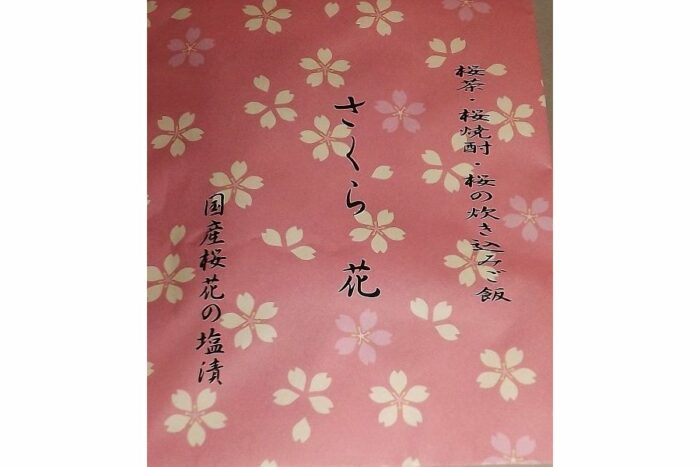 桜茶・桜焼酎・桜の炊き込みご飯
さくら 花
国産桜花の塩漬